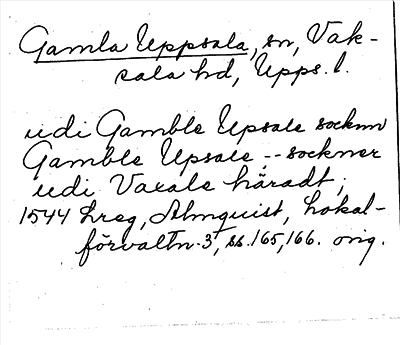 Gamla Uppsala, sn, Vak-
sala hd, Upps. l.
udi Gamble Upsale socknn
Gamble Upsale -- sockner
udi Vaxale häradt;
1544 Lreg, Almquist, Lokal-
förvaltn. 3, ss. 165, 166. orig.